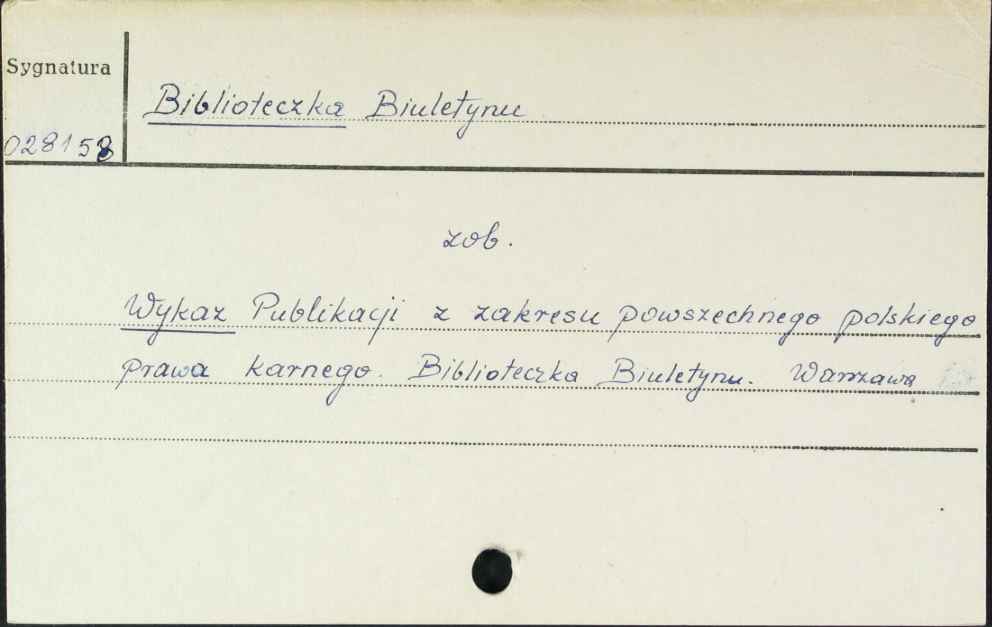 Sygnatura
Biblioteczka Biuletynu
028158
zob.
Wykaz Publikacji z zakresu powszechnego polskiego
prawa karnego. Biblioteczka Biuletynu. Warszawa